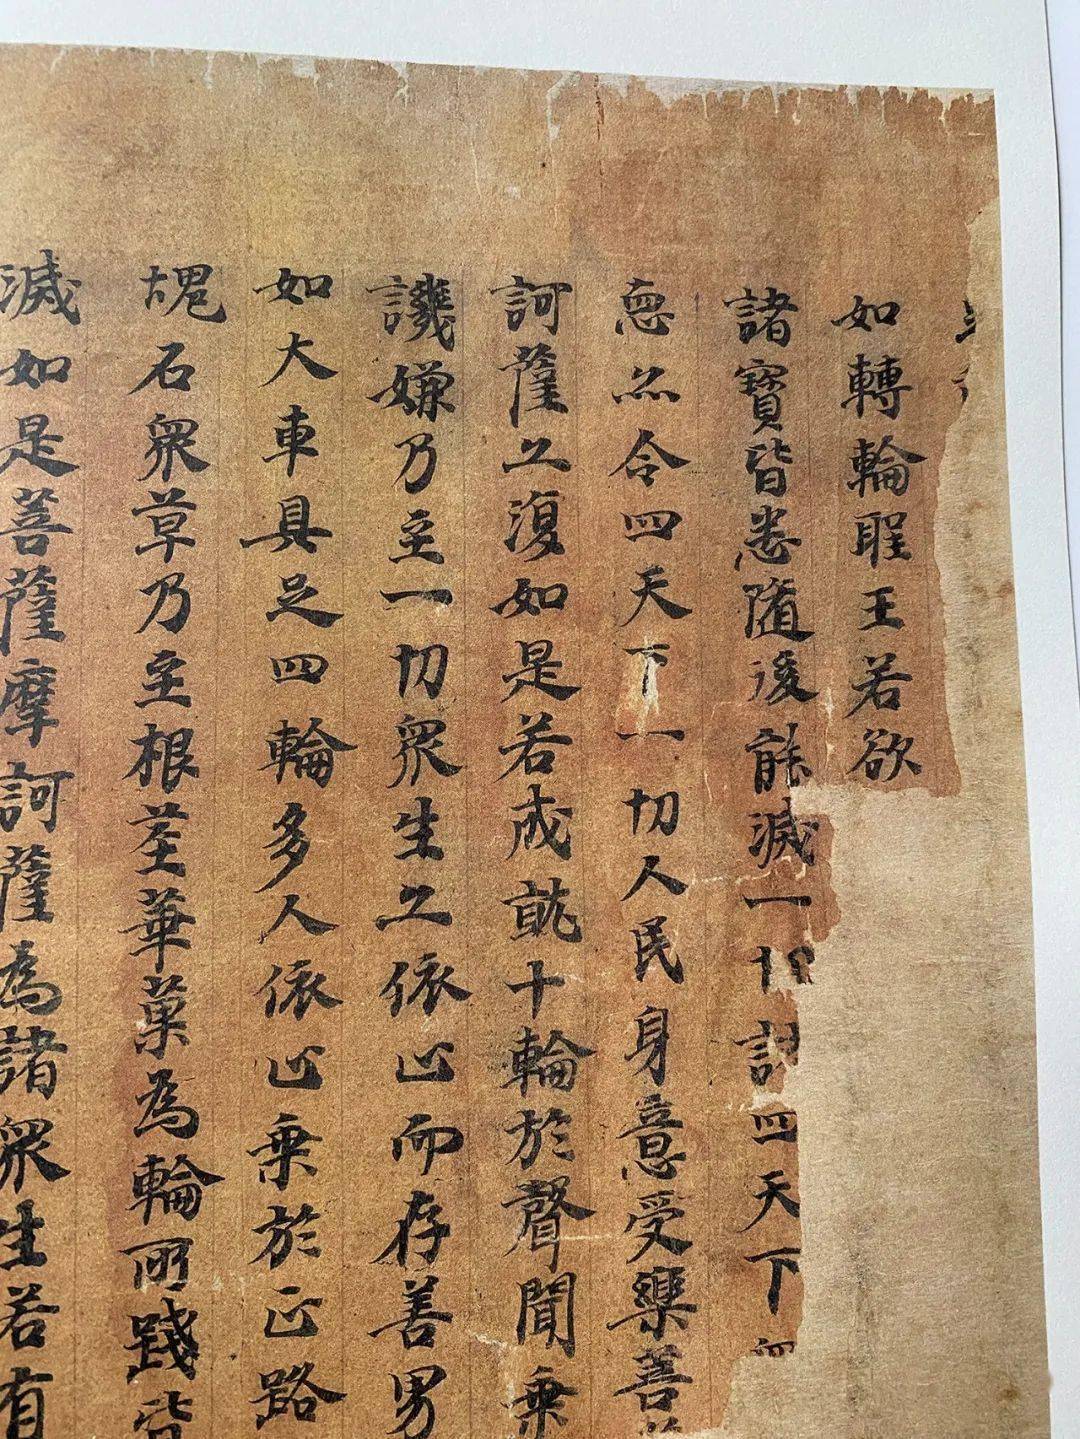 如轉輪聖王若欲
諸寶皆悉隨後能滅一切諸四天下
惡亦令四天下一切人民身意受樂善
訶薩亦復如是若成就十輪於聲聞乘
譏嫌乃至一切眾生亦依止而存善男
如大車具足四輪多人依止乘於正路
塊石眾草乃至根莖華菓為輪所踐皆
滅如是菩薩摩訶薩為諸眾生若有